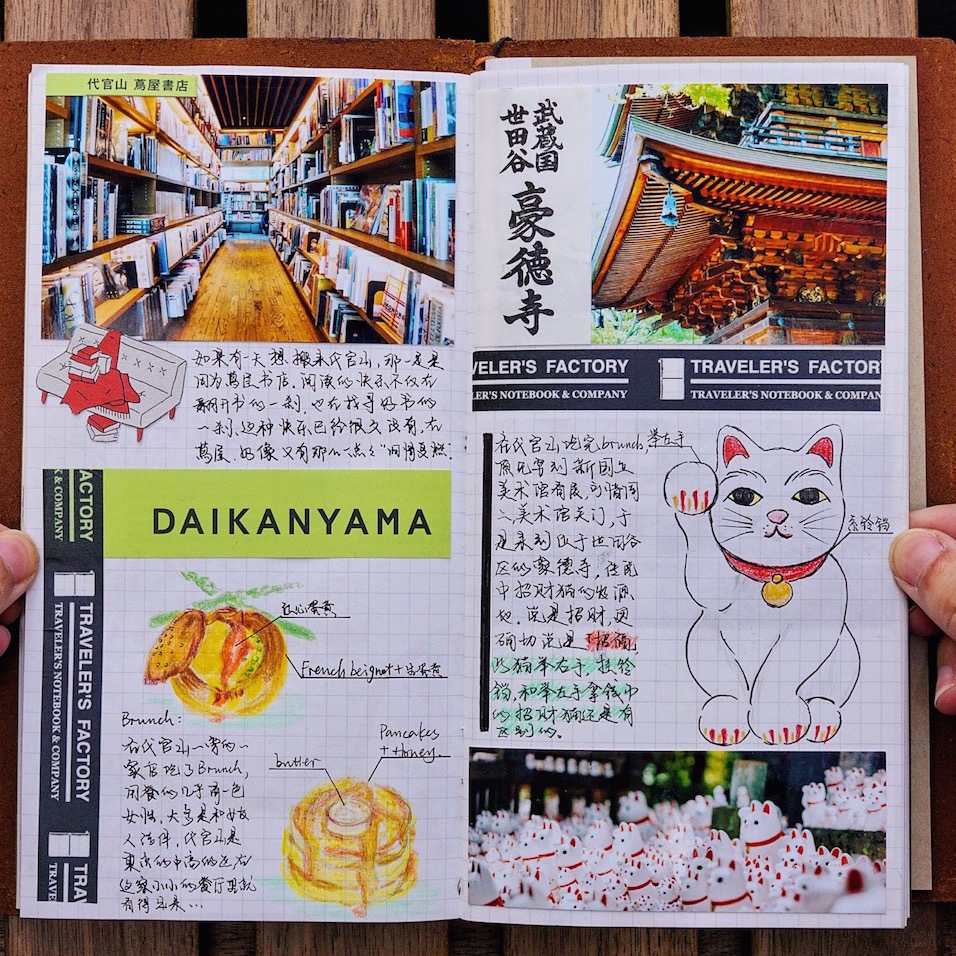 代官山 蔦屋書店
如果有一天想搬来代官山,那一定是
因为蔦屋书店,阅读的快乐不仅在
翻开书的一刹,也在找寻好书的
一刹,这种快乐已经很久没有,在
蔦屋,好像又有那么一点点"旧情复燃".
ACTORY
& COMPANY
DAIKANYAMA
TRAVELER'S FACTORY
TRAVELER'S NOTEBOOK & COMPANY
TRA
TRAVE
French beignet +
Brunch:
在代官山一旁的一
家店吃了Brunch,
用餐的几乎清一色
女性,大多是和好友
人结伴,代官山是
东京的中高档区,在
这家小小的餐厅里就
有得见来...
butter
Pancakes
+ Honey
武蔵国
世田谷
豪徳寺
VELER'S FACTORY
LER'S NOTEBOOK & COMPANY
TRAVELER'S FACTOR
TRAVELER'S NOTEBOOK & COMPAN
在代官山吃完brunch,
原先写到新国立
美术馆看展,可惜周
二美术馆关门,于
是来到位于世田谷
区的豪德寺,在
中招财猫的发源
地,说是招财,更
确切说是"招福"
此猫举右手,挂铃
铛,和举左手拿钱币
的招财猫还是有
区别的.
举左手
系铃铛